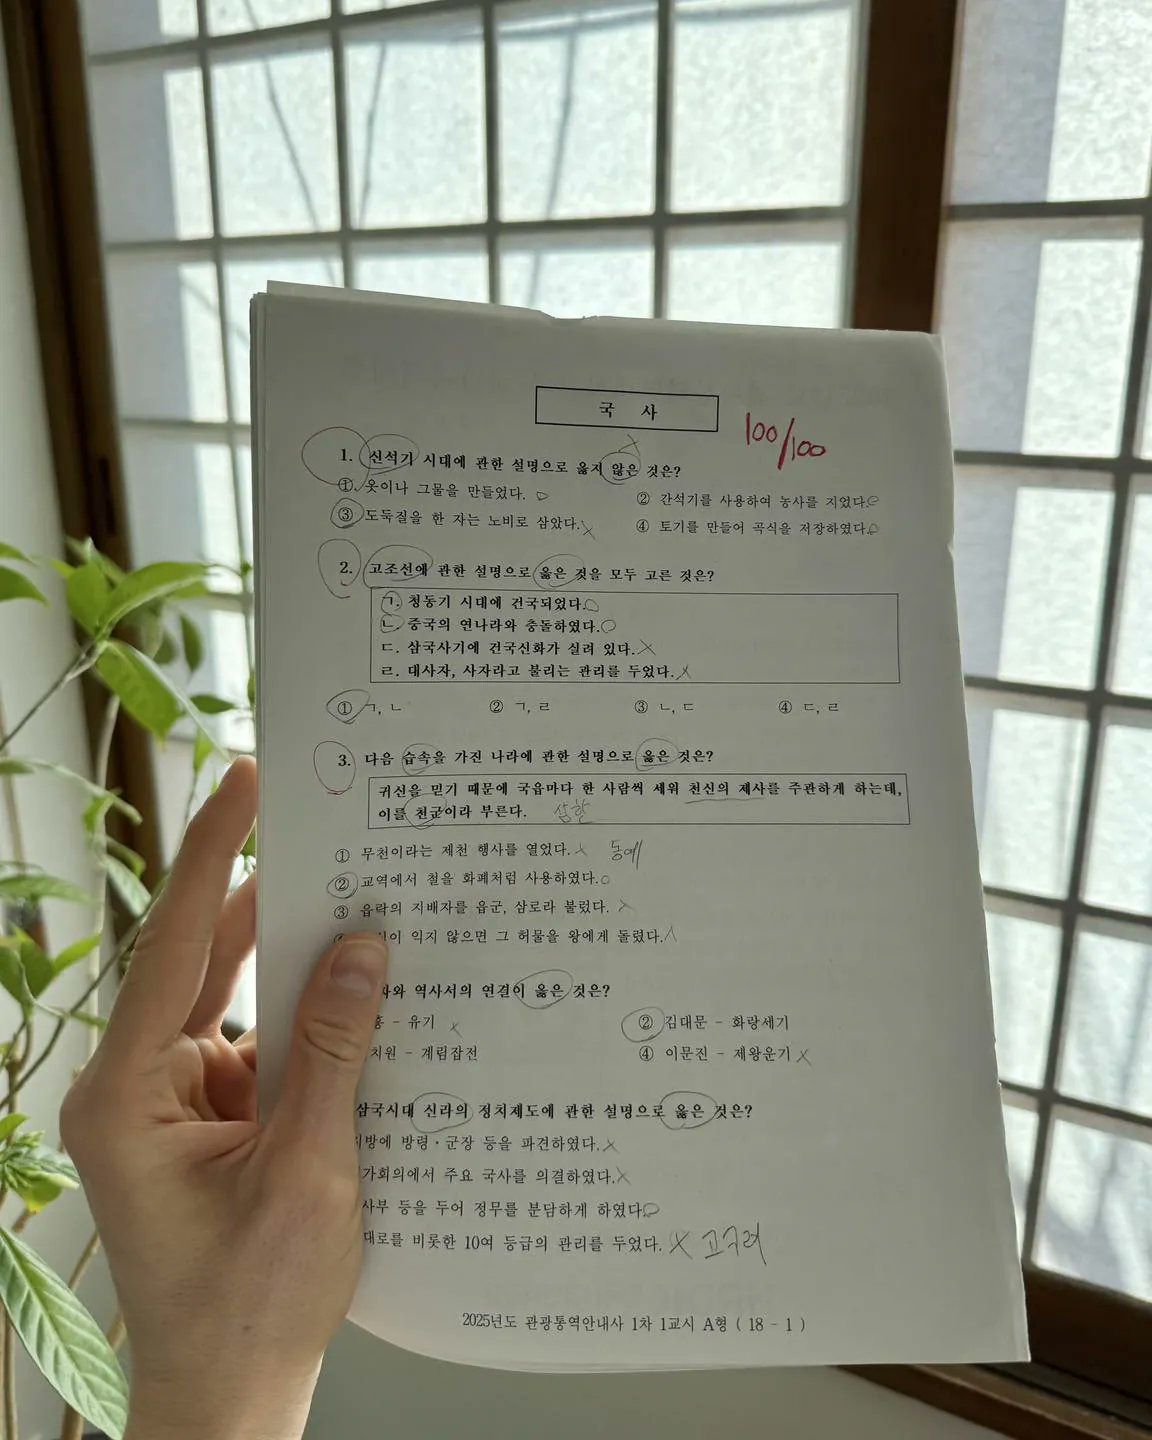 국 사
100/100
1. 신석기 시대에 관한 설명으로 옳지 않은 것은?
① 옷이나 그물을 만들었다. ② 간석기를 사용하여 농사를 지었다.
③ 도둑질을 한 자는 노비로 삼았다. ④ 토기를 만들어 곡식을 저장하였다.
2. 고조선에 관한 설명으로 옳은 것을 모두 고른 것은?
ㄱ. 청동기 시대에 건국되었다.
ㄴ. 중국의 연나라와 충돌하였다.
ㄷ. 삼국사기에 건국신화가 실려 있다.
ㄹ. 대사자, 사자라고 불리는 관리를 두었다.
① ㄱ, ㄴ ② ㄱ, ㄹ ③ ㄴ, ㄷ ④ ㄷ, ㄹ
3. 다음 습속을 가진 나라에 관한 설명으로 옳은 것은?
귀신을 믿기 때문에 국읍마다 한 사람씩 세워 천신의 제사를 주관하게 하는데,
이를 천군이라 부른다. 삼한
① 무천이라는 제천 행사를 열었다. 동예
② 교역에서 철을 화폐처럼 사용하였다.
③ 읍락의 지배자를 읍군, 삼로라 불렀다.
익지 않으면 그 허물을 왕에게 돌렸다.
역사서의 연결이 옳은 것은?
- 유기 ② 김대문 - 화랑세기
치원 - 계림잡전 ④ 이문진 - 제왕운기
삼국시대 신라의 정치제도에 관한 설명으로 옳은 것은?
방령·군장 등을 파견하였다.
가회의에서 주요 국사를 의결하였다.
사부 등을 두어 정무를 분담하게 하였다.
대로를 비롯한 10여 등급의 관리를 두었다. 고구려
2025년도 관광통역안내사 1차 1교시 A형 ( 18 - 1 )